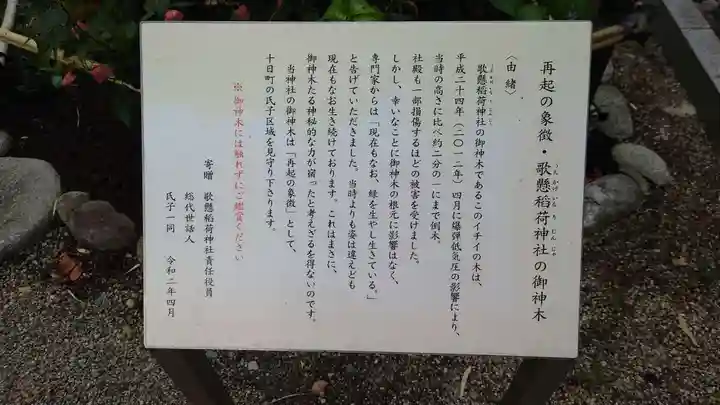 再起の象徴・歌懸稲荷神社の御神木
〈由緒〉
歌懸稲荷神社の御神木であるこのイチイの木は、
平成二十四年（二〇一二年）四月に爆弾低気圧の影響により、
当時の高さに比べ約二分の一にまで倒木。
社殿も一部損傷するほどの被害を受けました。
しかし、幸いなことに御神木の根元に影響はなく、
専門家からは「現在もなお、緑を生やし生きている。」
と告げていただきました。当時よりも姿は違えども
現在もなお生き続けております。これはまさに、
御神木たる神秘的な力が宿ったと考えざるを得ないのです。
当神社の御神木は「再起の象徴」として、
十日町の氏子区域を見守り下さります。
※御神木には触れずにご鑑賞ください
寄贈　歌懸稲荷神社責任役員
総代世話人
氏子一同　令和二年四月